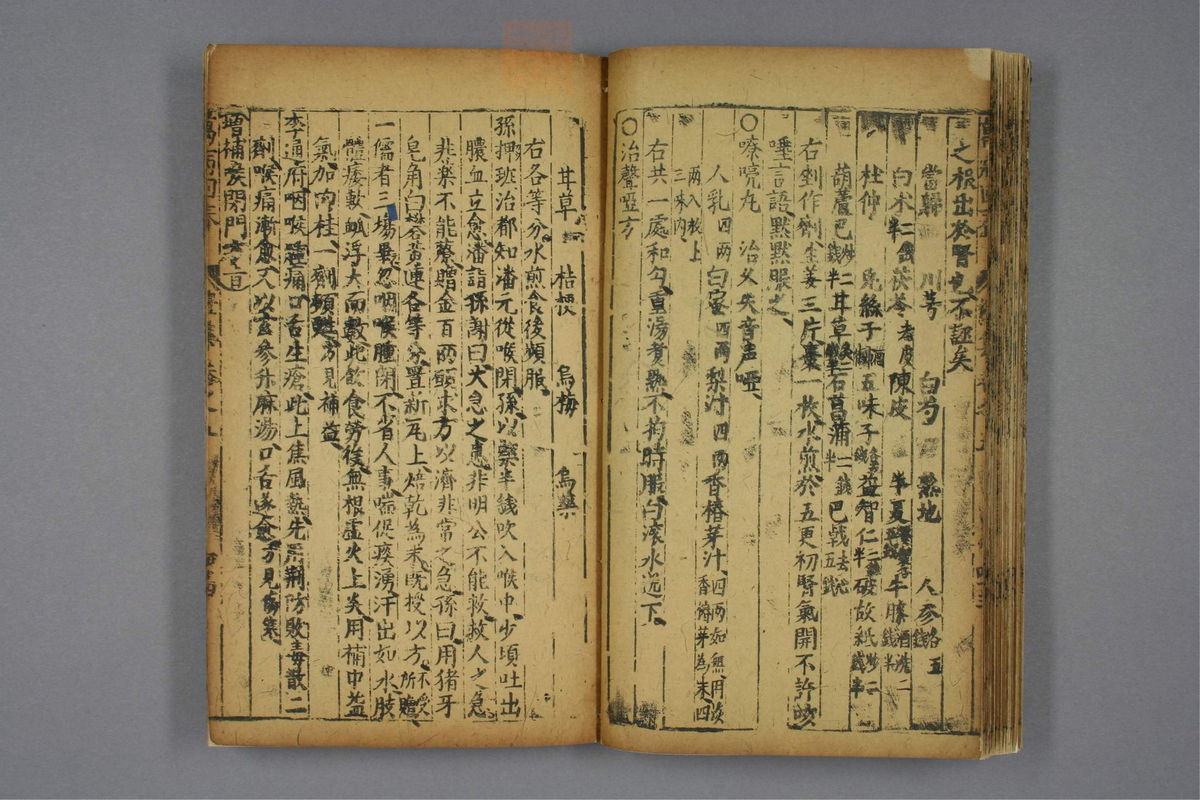 之根出於腎也不誣矣
當歸 川芎 白芍 熟地 人參各五
白朮 茯苓 陳皮 半夏 牛膝酒洗二
杜仲 兔絲子 五味子 益智仁 破故紙炒二
葫蘆巴 甘草 石菖蒲 巴戟去
右剉作劑生姜三片棗一枚水煎於五更初腎氣開不許咳
唾言語默默服之
○嘹喨丸 治久失音声啞
人乳四兩 白蜜四兩 梨汁四兩 香椿芽汁四兩如無用淡
香椿芽為末四兩入 上三味內
右共一處和勻重湯煮熟不拘時服白滾水送下
○治聲啞方
甘草 桔梗 烏梅 烏藥
右各等分水煎食後頻服
孫押班治都知潘元從喉閉孫以藥半錢吹入喉中少頃吐出
膿血立愈潘詣孫謝曰大急之患非明公不能救救人之急
非藥不能療贈金百兩願求方以濟非常之急孫曰用猪牙
皂角白礬黃連各等分置新瓦上焙乾為末既授以方不受所贈
一儒者三場畢忽咽喉腫閉不省人事喘促痰湧汗出如水肢
體痿軟脉浮大而數此飲食勞後無根虛火上炎用補中益
氣加肉桂一劑頓甦方見補益
李通府咽喉腫痛口舌生瘡此上焦風熱先用荆防敗毒散二
劑喉痛漸愈又以玄參升麻湯口舌遂愈方見
增補喉閉門